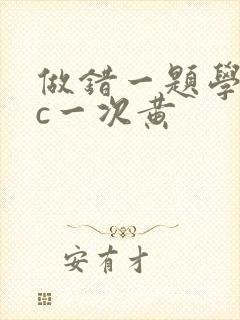 做錯一題學
c一次黃
安有才